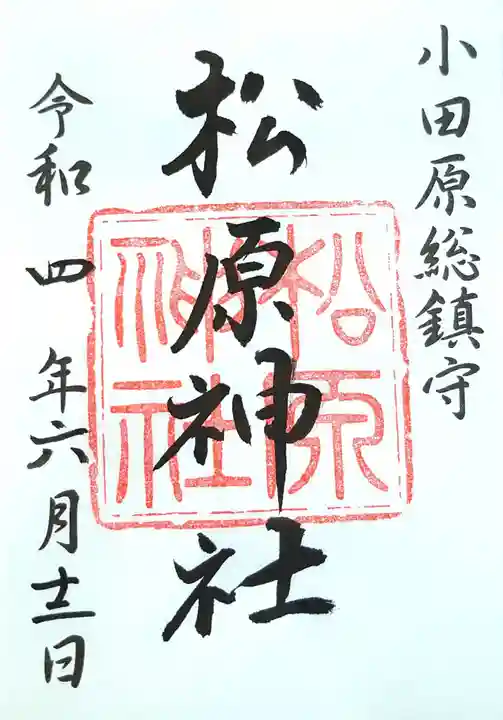 小田原総鎮守
松原神社
松原
神社
令和四年六月十三日